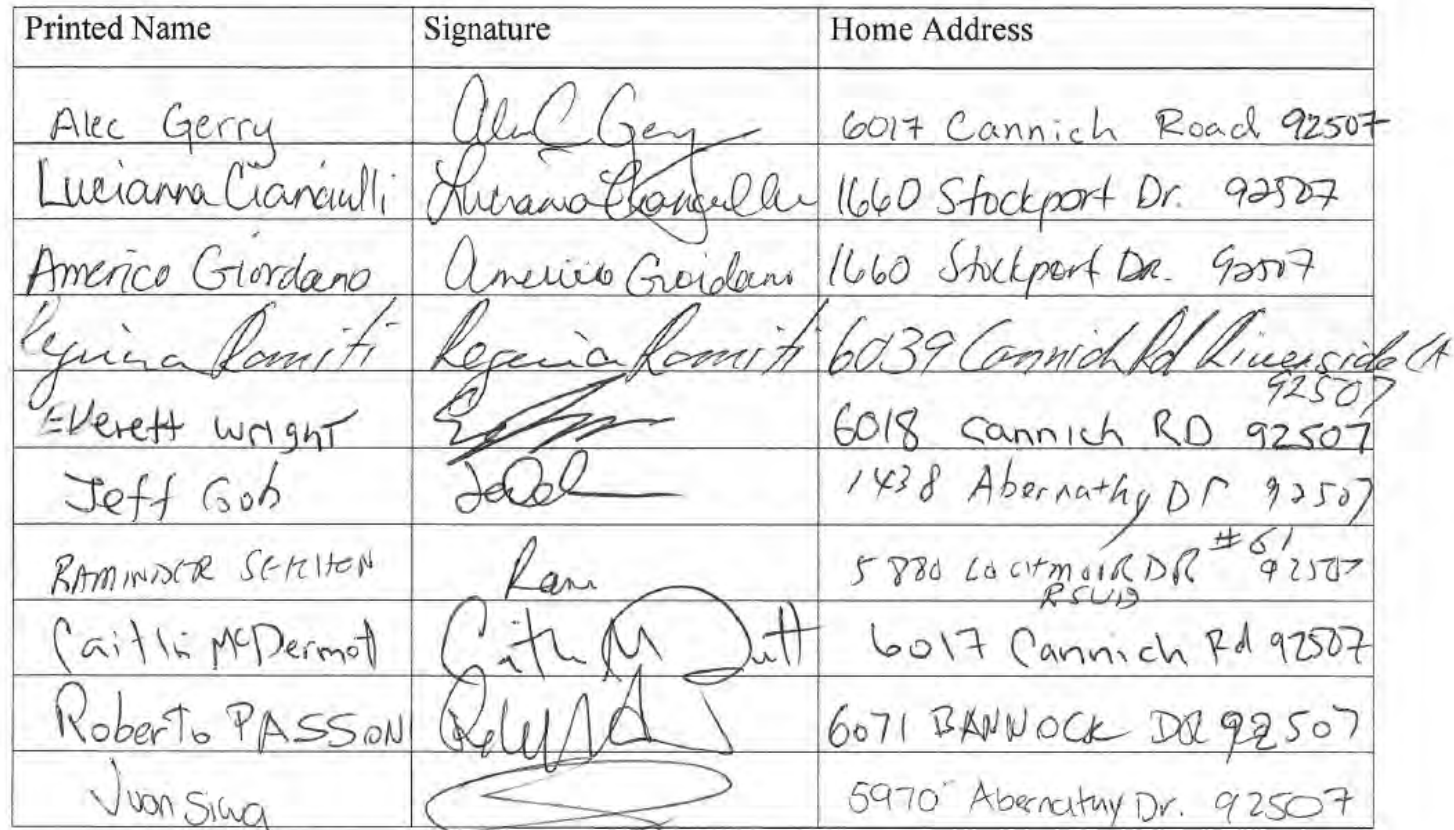 Printed Name Signature Home Address
Alec Gerry Alec Gerry 6017 Cannich Road 92507
Lucianna Cianciulli Lucianna Cianciulli 1660 Stockport Dr. 92507
Americo Giordano Americo Giordano 1660 Stockport DR. 92507
Regina Ramiti Regina Ramiti 6039 Cannich Rd Riverside CA
92507
Everett Wright 6018 Cannich RD 92507
Jeff Goh 1438 Abernathy Dr 92507
RAMINDER SEKHON Ram 5880 LOCHMOOR DR #61 92507
RSVD
Caitlin McDermott 6017 Cannich Rd 92507
Roberto PASSON 6071 BANNOCK DR 92507
Juan Silva 5970 Abernathy Dr. 92507